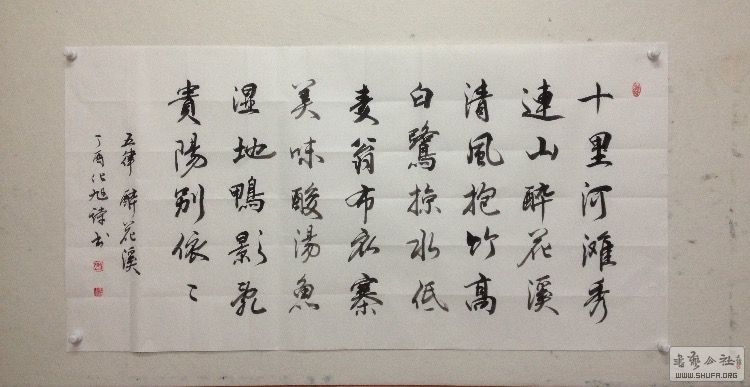 十里河滩秀
連山醉花溪
清風抱竹高
白鷺掠水低
麦翁布衣寨
美味酸湯魚
湿地鴨影乱
貴陽别依〻
五律 醉花溪
丁酉 旭诗书
书艺公社
WWW.SHUFA.ORG